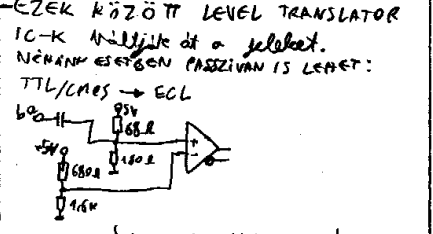 -EZEK KÖZÖTT LEVEL TRANSLATOR
IC-K váltják át a jeleket.
NÉHÁNY ESETBEN PASSZÍVAN IS LEHET:
TTL/CMOS → ECL
be
5V
68Ω
+5V
180Ω
680Ω
1,6K
+
-